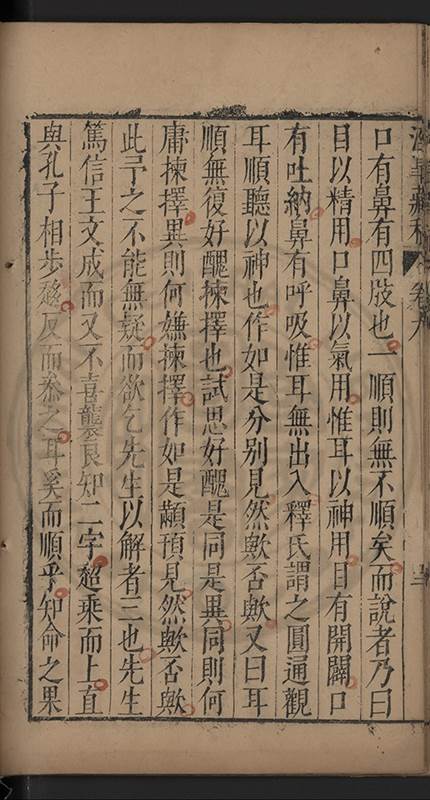 卷九
口有鼻有四肢也一順則無不順矣而說者乃曰
目以精用口鼻以氣用惟耳以神用目有開闔口
有吐納鼻有呼吸惟耳無出入釋氏謂之圓通觀
耳順聽以神也作如是分別見然歟否歟又曰耳
順無復好醜揀擇也試思好醜是同是異同則何
庸揀擇異則何嫌揀擇作如是顢預見然歟否歟
此予之不能無疑而欲乞先生以解者三也先生
篤信王文成而又不喜襲良知二字超乘而上直
與孔子相步趨反而叅之耳奚而順乎知命之果